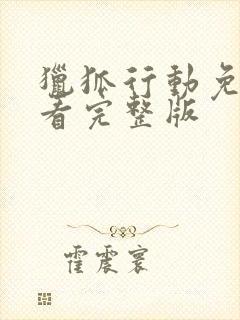 獵狐行動免
看完整版
霍震寰